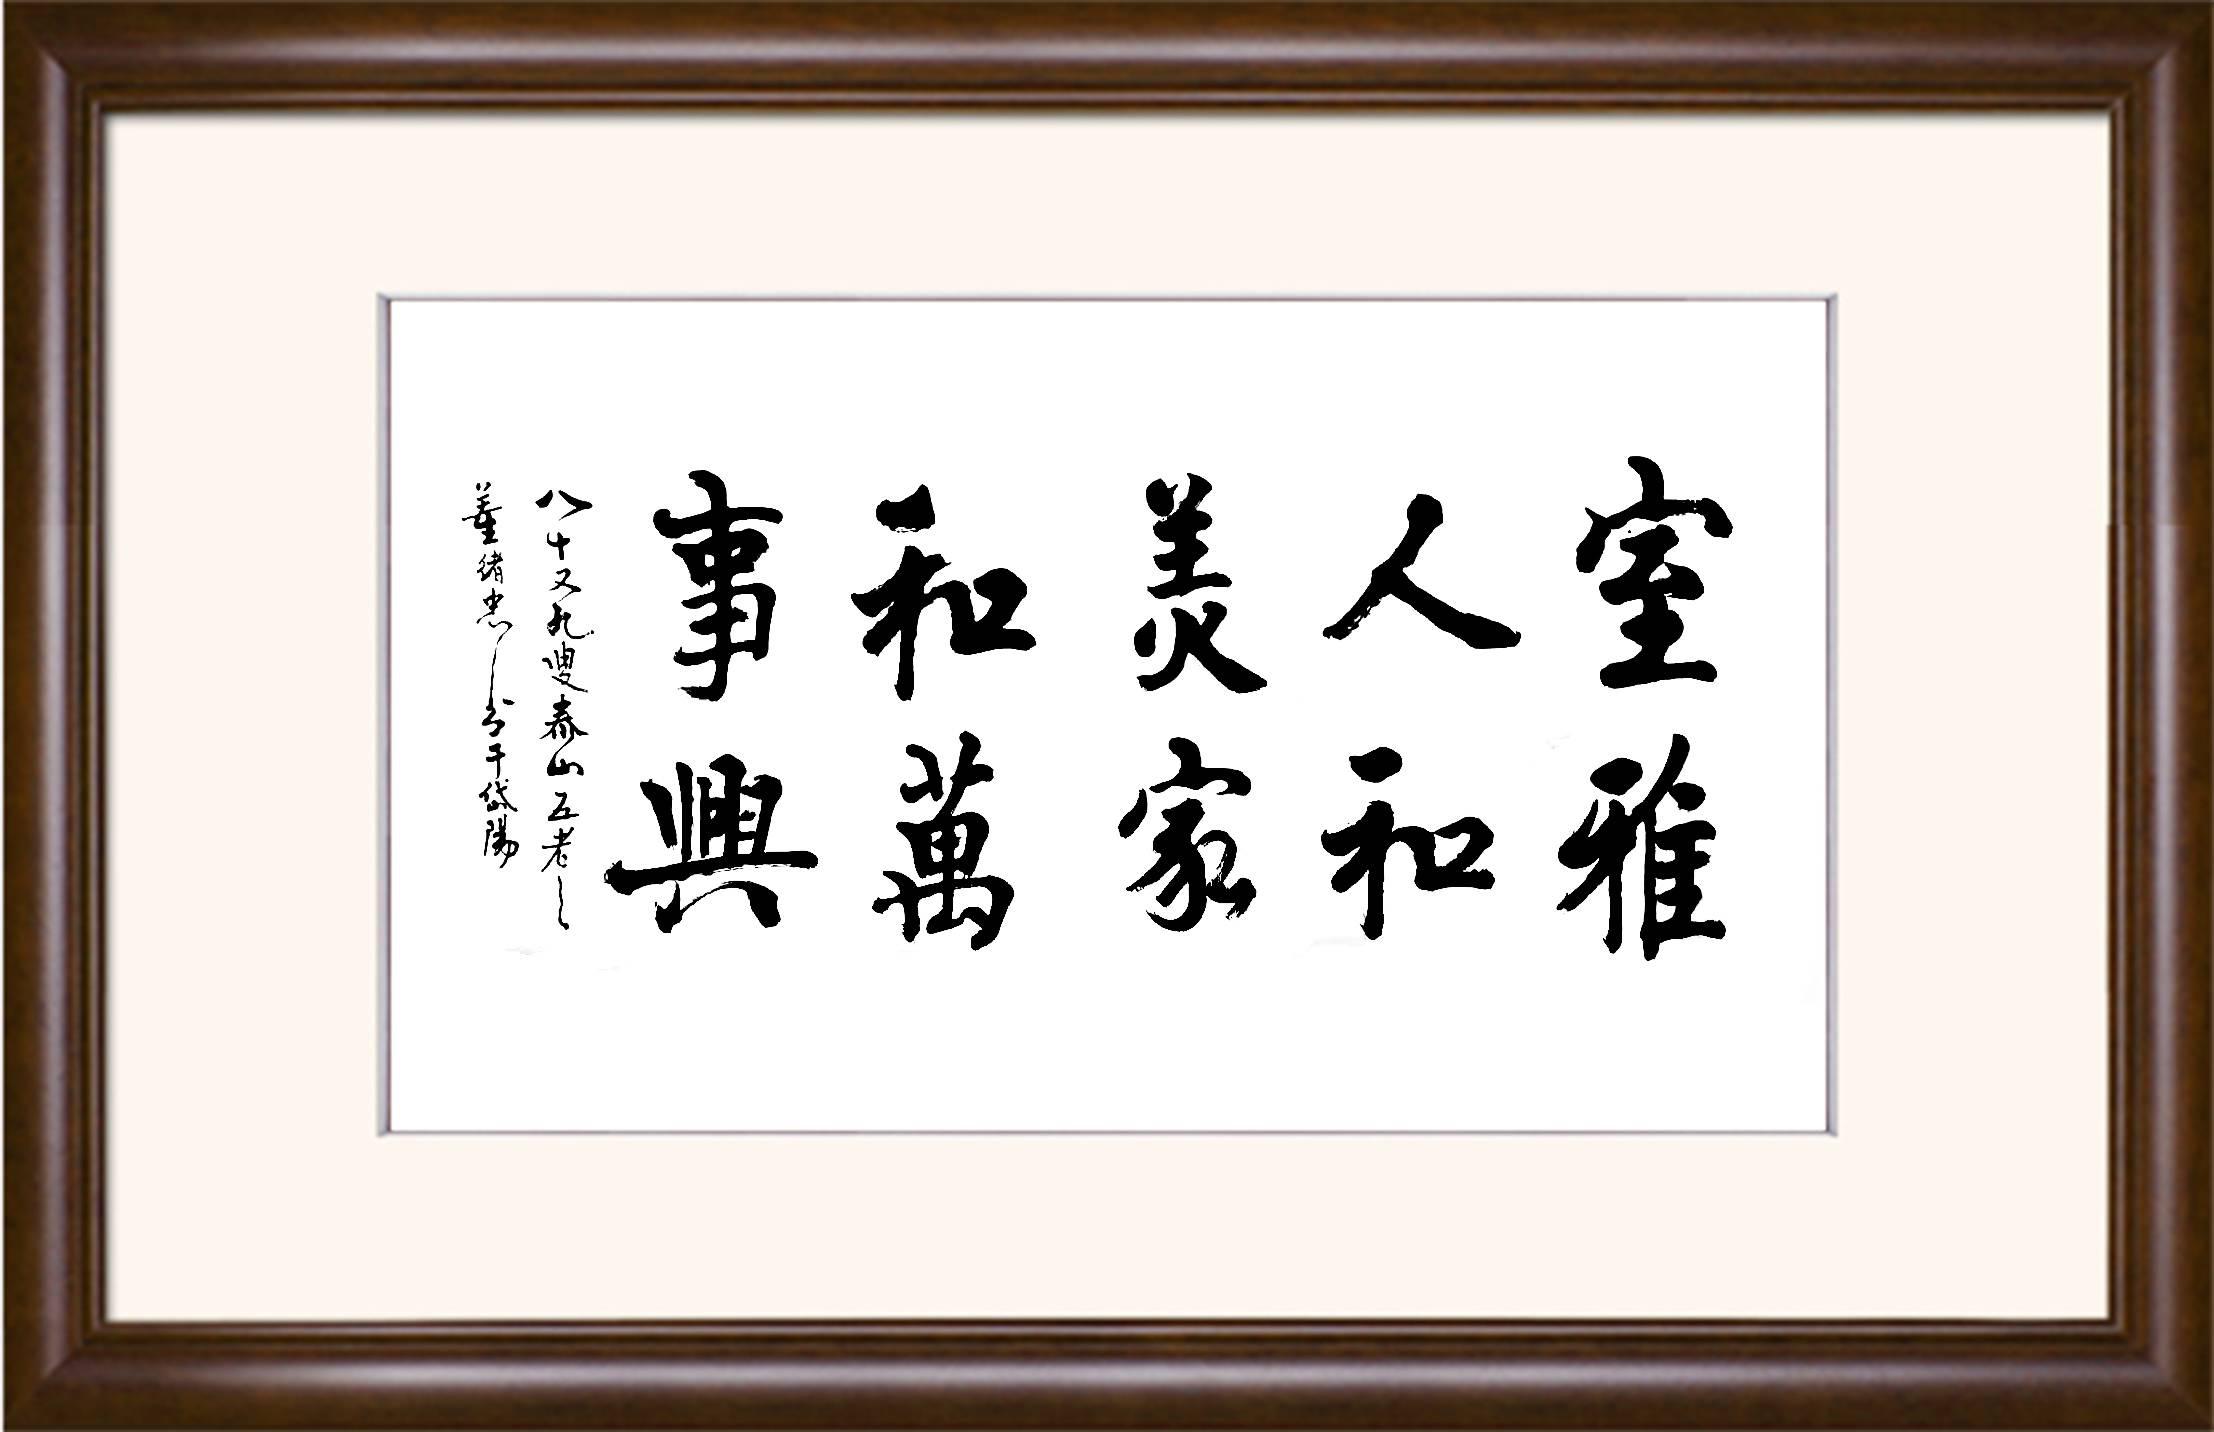 室雅
人和
美家
和萬
事興
八十又九叟泰山五老之一
董緒忠書于岱陽